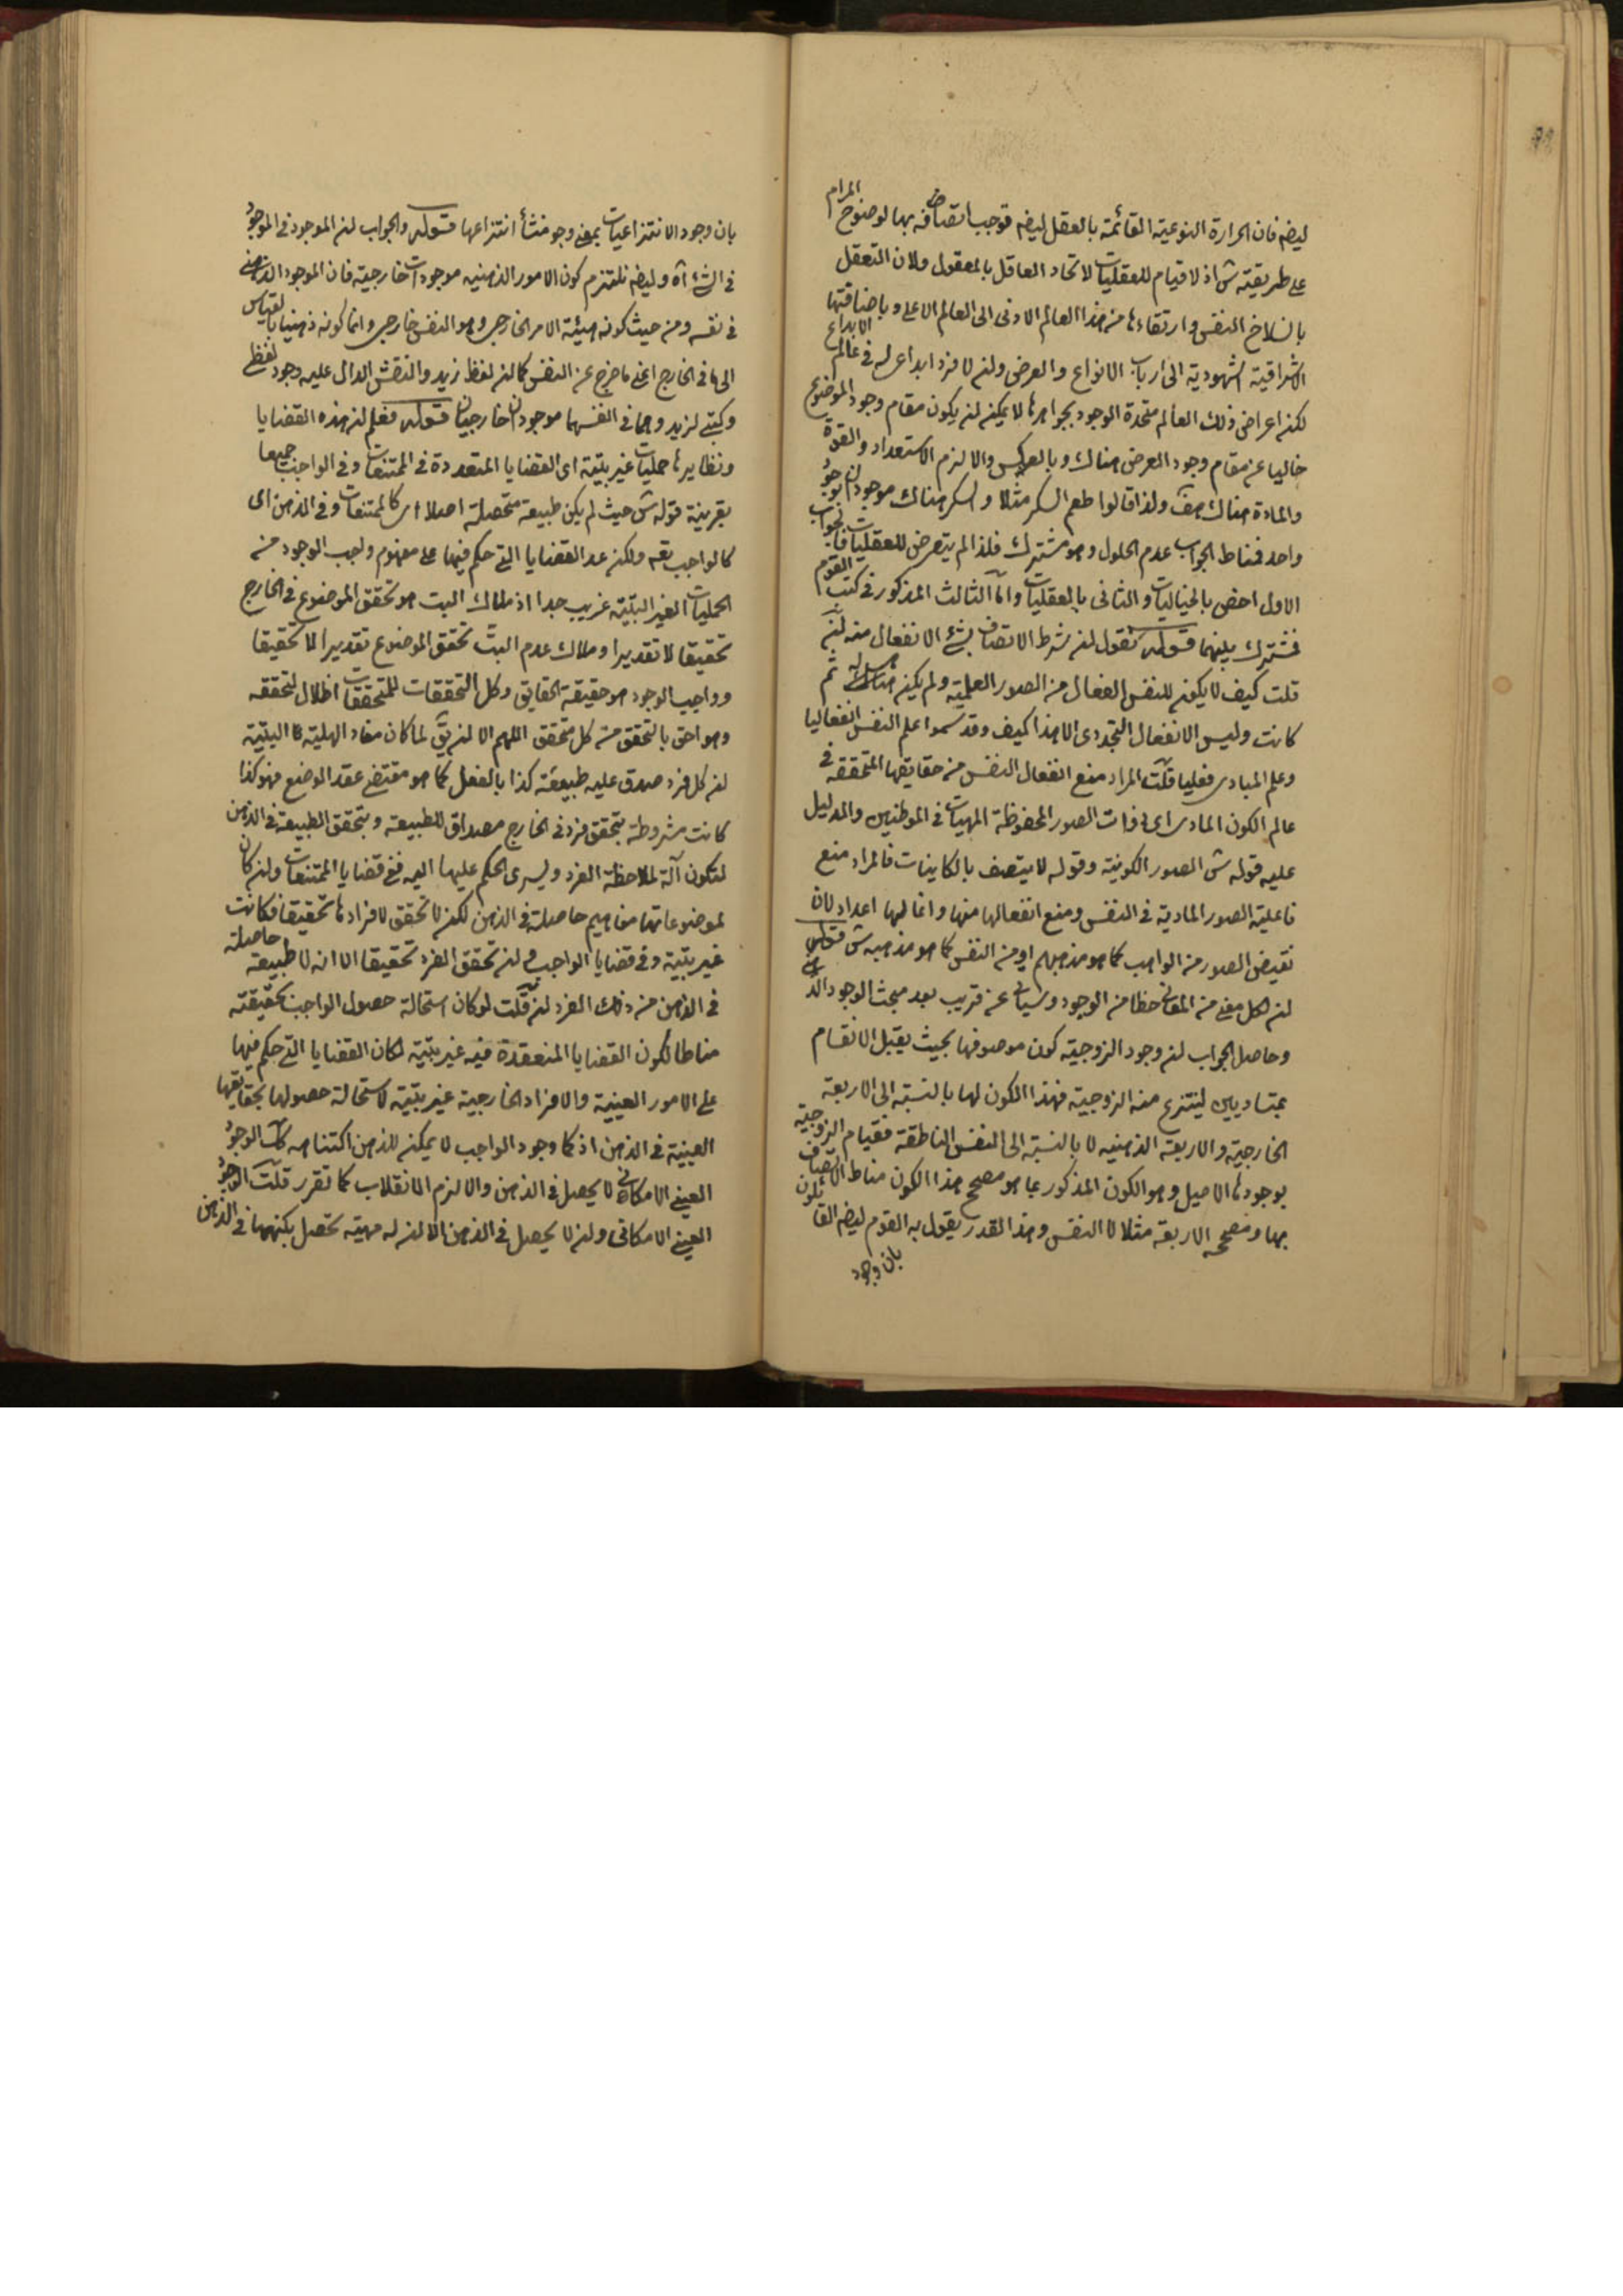 ايضا فان الحرارة النوعية القائمة بالعقل ايضا توجب اتصافه بها لوضوح المرام
على طريقته ش اذ لا قيام للعقليات لاتحاد العاقل بالمعقول ولان التعقل
بانسلاخ النفس وارتقاءها من هذا العالم الادنى الى العالم الاعلى وباضافتها
الاشراقية الشهودية الى ارباب الانواع والعرض وان لا فرد ابداعى له فى عالم الابداع
لكن اعراض ذلك العالم متحدة الوجود بجواهرها لا يمكن ان يكون مقام وجود الموضوع
خاليا عن مقام وجود العرض هناك وبالعكس والا لزم الاستعداد والقوة
والمادة هناك هف ولذا قالوا طعم السكر مثلا والسكر هناك موجودان بوجود
واحد فمناط الجواب عدم الحلول وهو مشترك فلذا لم يتعرض للعقليات فالجواب
الاول اخص بالخياليات والثانى بالعقليات واما الثالث المذكور فى كتب القوم
فمشترك بينهما قوله نقول ان شرط الاتصاف بشئ الانفعال منه ان
قلت كيف لا يكون للنفس انفعال من الصور العلمية ولم يكن هناك ثم
كانت وليس الانفعال التجددى الا هذا كيف وقد سموا علم النفس انفعاليا
وعلم المبادى فعليا قلت المراد منع انفعال النفس من حقايقها المتحققة فى
عالم الكون المادى اى ذوات الصور المحفوظة المهيات فى الموطنين والدليل
عليه قوله ش الصور الكونية وقوله لا يتصف بالكاينات فالمراد منع
فاعلية الصور المادية فى النفس ومنع انفعالها منها وافعالها اعداد لان
تفيض الصور من الواهب كما هو مذهبهم او من النفس كما هو مذهبه ش قوله
ان لكل معنى من المعانى حظا من الوجود وسياتى عن قريب بعد مبحث الوجود الذهنى
وحاصل الجواب ان وجود الزوجية كون موصوفها بحيث يقبل الانقسام
بمتساويين لينتزع منه الزوجية فهذا الكون لها بالنسبة الى الاربعة
الخارجية والاربعة الذهنيه لا بالنسبة الى النفس الناطقة فقيام الزوجية
بوجودها الاصيل وهو الكون المذكور بما هو مصحح هذا الكون مناط الاتصاف
بها ومصححه الاربعة مثلا لا النفس وهذا القدر يقول به القوم ايضا القائلون
بان وجود
بان وجود الانتزاعيات بمعنى وجود منشأ انتزاعها قوله والجواب ان الموجود فى الموجود
فى الشئ آه وايضا نلتزم كون الامور الذهنيه موجودات خارجية فان الموجود الذهنى
فى نفسه ومن حيث كونه هيئة الامر الخارجى وهو النفس خارجى وانما كونه ذهنيا بالقياس
الى ما فى الخارج اعنى ما خرج عن النفس كما ان لفظ زيد والنقش الدال عليه وجود لفظى
وكتبى لزيد وهما فى انفسهما موجودان خارجيان قوله فعلم ان هذه القضايا
ونظايرها حمليات غير بتية اى القضايا المتعددة فى الممتنعات وفى الواجب جميعا
بقرينة قوله ش حيث لم يكن طبيعة متحصلة اصلا اى كالممتنعات وفى الذهن اى
كالواجب تعه ولكن عد القضايا التى حكم فيها على مفهوم واجب الوجود من
الحمليات الغير البتية غريب جدا اذ ملاك البت هو تحقق الموضوع فى الخارج
تحقيقا لا تقديرا وملاك عدم البت تحقق الموضوع تقديرا لا تحقيقا
وواجب الوجود هو حقيقة الحقايق وكل التحققات للمتحققات اظلال لتحققه
وهو احق بالتحقق من كل متحقق اللهم الا ان يق لما كان مفاد الهلية البتية
ان كل فرد صدق عليه طبيعة كذا بالفعل كما هو مقتضى عقد الوضع فهو كذا
كانت مشروطة بتحقق فرد فى الخارج مصداق للطبيعة وبتحقق الطبيعة فى الذهن
لتكون آلة لملاحظة الفرد ويسرى الحكم عليها اليه ففى قضايا الممتنعات وان كان
لموضوعاتها مفاهيم حاصلة فى الذهن لكن لا تحقق لافرادها تحقيقا فكانت
غير بتية وفى قضايا الواجب وان تحقق الفرد تحقيقا الا انه لا طبيعة حاصلة
فى الذهن من ذلك الفرد ان قلت لو كان استحالة حصول الواجب بحقيقته
مناطا لكون القضايا المنعقدة فيه غير بتية لكان القضايا التى حكم فيها
على الامور العينية والافراد الخارجية غير بتية لاستحالة حصولها بحقايقها
العينية فى الذهن اذ كما وجود الواجب لا يمكن للذهن اكتناهه كك الوجود
العينى الامكانى لا يحصل فى الذهن والا لزم الانقلاب كما تقرر قلت الوجود
العينى الامكانى وان لا يحصل فى الذهن الا ان له مهية تحصل بكنهها فى الذهن